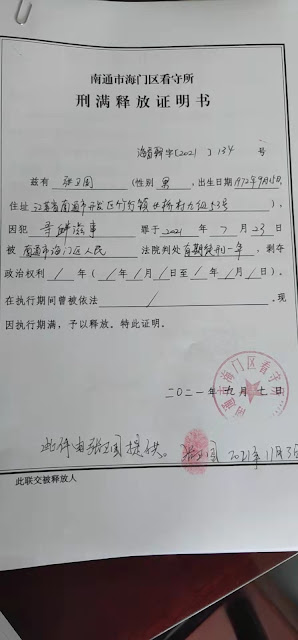 南通市海门区看守所
刑满释放证明书
海看释字[2021]134号
兹有 张卫国 (性别 男 ,出生日期1972年9月15日,
住址江苏省南通市开发区竹行镇 桥村九组53号),
因犯 寻衅滋事 罪于2021年7月23日
被 南通市海门区人民 法院判处 有期徒刑一年 ,剥夺
政治权利 / 年( / 年 / 月 / 日至 / 年 / 月 / 日)。
在执行期间曾被依法 / 。现
因执行期满,予以释放。特此证明。
南通市海门区看守
二〇二一年九月七日
此件由张卫国提供。张卫国 2021年11月3日
此联交被释放人